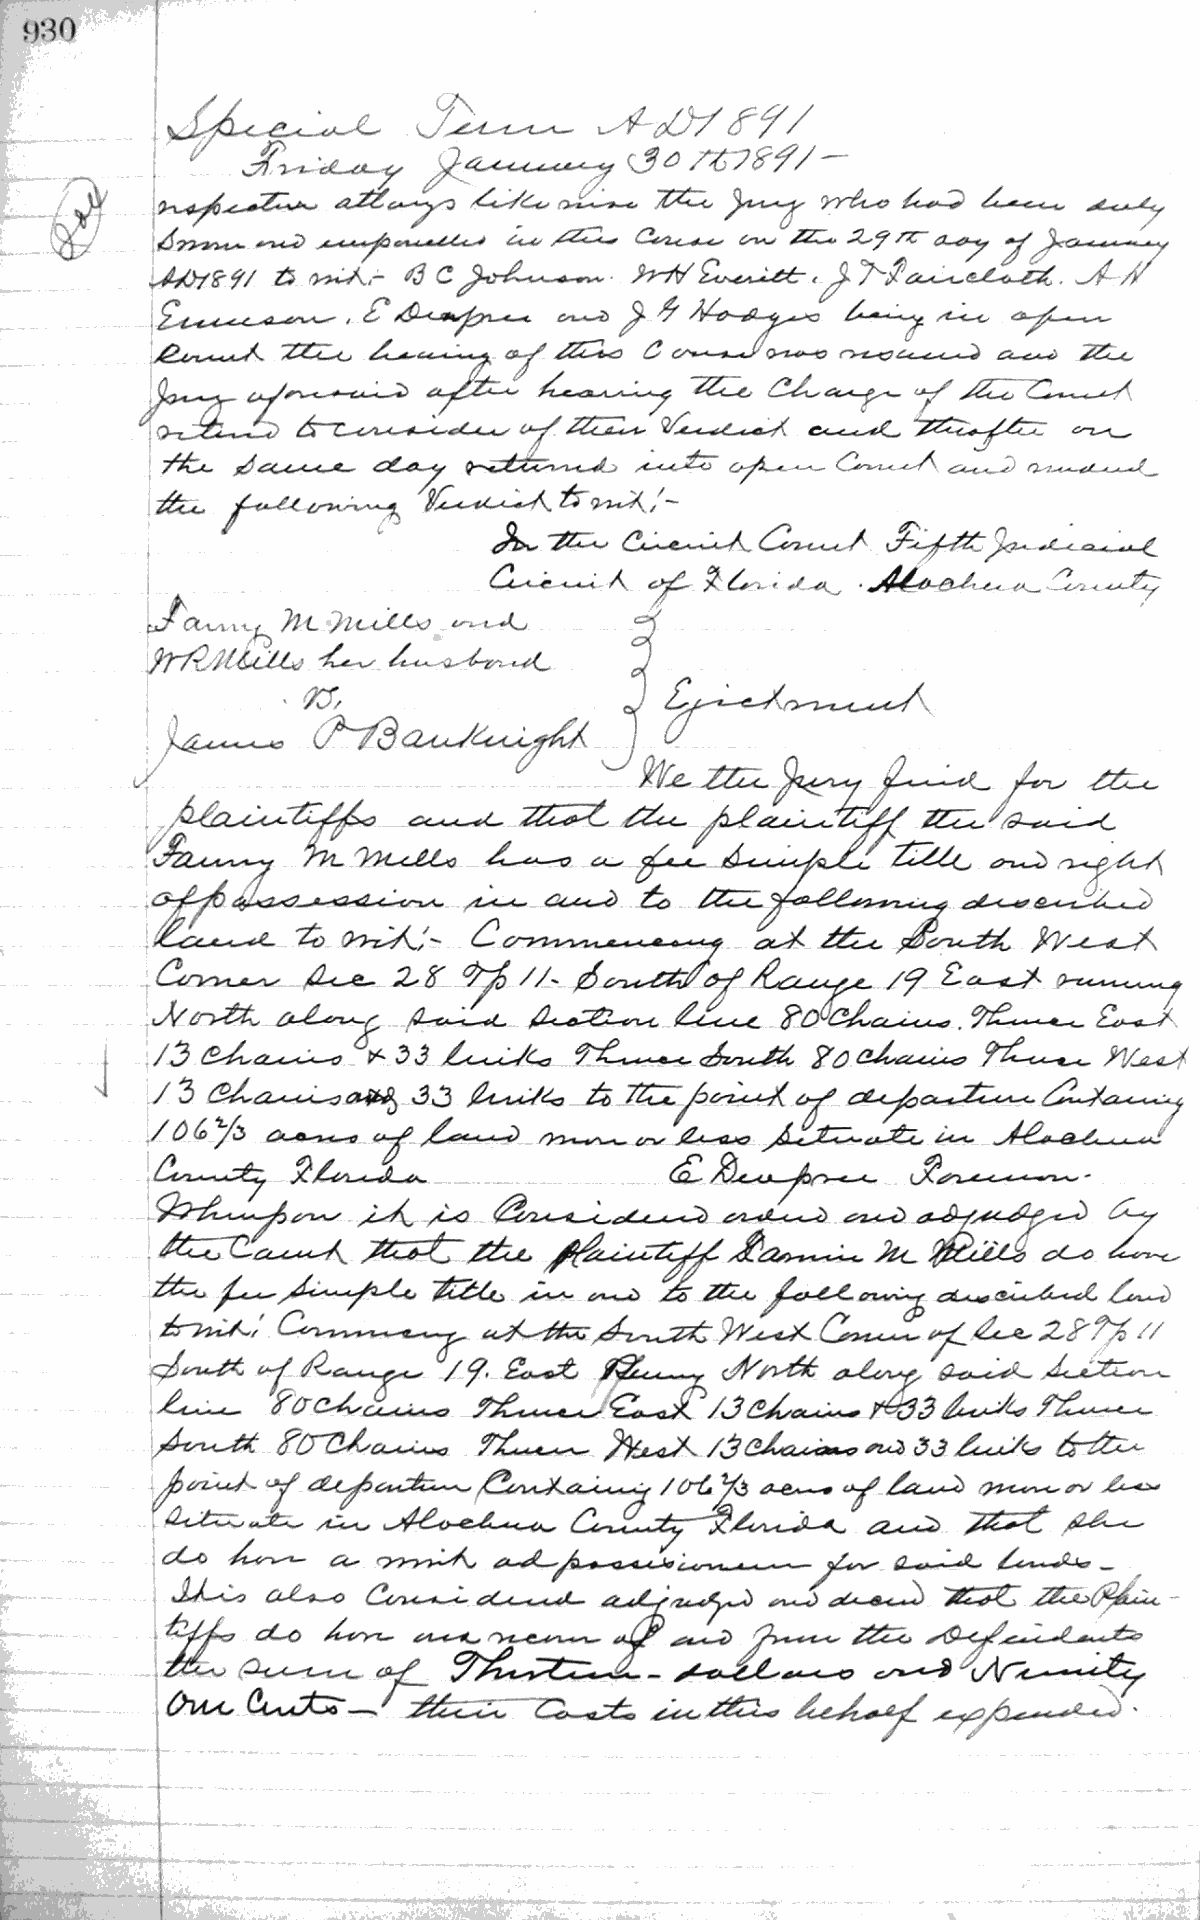 930
Special Term AD 1891
Friday January 30th 1891-
respective attorneys likewise the Jury who had been duly
Sworn and empanelled in this Cause on the 29th day of January
AD 1891 to wit:- B C Johnson. W H Everitt. J T Faircloth. A H
Emerson. E Dupree and J G Hodges being in open
Court the hearing of this Cause was resumed and the
Jury aforesaid after hearing the Charge of the Court
retired to consider of their Verdict and thereafter on
the same day returned into open Court and rendered
the following Verdict to wit:-
In the Circuit Court Fifth Judicial
Circuit of Florida. Alachua County
Fanny M Mills and
W R Mills her husband
vs.
Ejectment
James P Bauknight
We the Jury find for the
plaintiffs and that the plaintiff the said
Fanny M Mills has a fee simple title and right
of possession in and to the following described
land to wit:- Commencing at the South West
Corner Sec 28 Tp 11- South of Range 19 East running
North along said section line 80 Chains. Thence East
13 Chains & 33 links Thence South 80 Chains Thence West
13 Chains and 33 links to the point of departure Containing
106 2/3 acres of land more or less situate in Alachua
County Florida E Dupree Foreman.
Whereupon it is Considered ordered and adjudged by
the Court that the plaintiff Fannie M Mills do have
the fee simple title in and to the following described land
to wit: Commencing at the South West Corner of Sec 28 Tp 11
South of Range 19. East Runing North along said section
line 80 Chains Thence East 13 Chains & 33 links Thence
South 80 Chains Thence West 13 Chains and 33 links to the
point of departure Containing 106 2/3 acres of land more or less
situate in Alachua County Florida and that she
do have a writ ad possessionem for said lands-
It is also Considered adjudged and decreed that the Plain-
tiffs do have and recover of and from the Defendants
the sum of Thirteen- dollars and Ninety
One Cents- their Costs in this behalf expended.